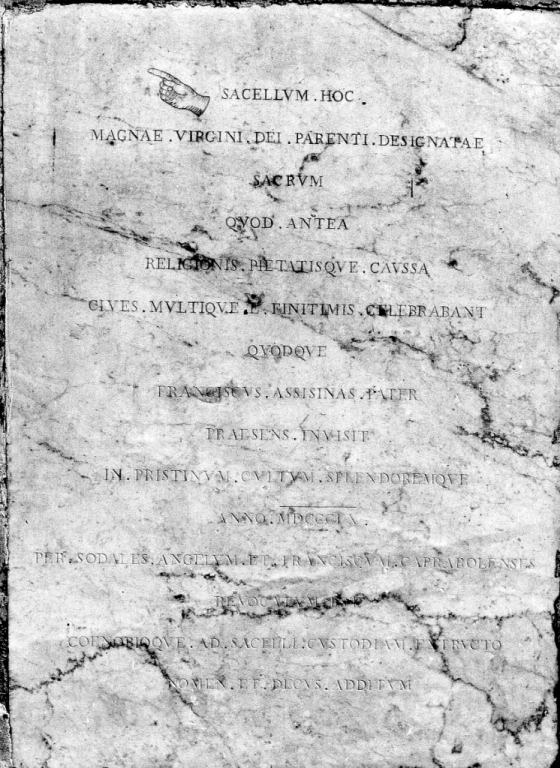 SACELLVM . HOC .
MAGNAE . VIRGINI . DEI . PARENTI . DESIGNATAE
SACRVM
QVOD . ANTEA
RELIGIONIS . PIETATISQVE . CAVSSA
CIVES . MVLTIQVE . E . FINITIMIS . CELEBRABANT
QVODQVE
FRANCISCVS . ASSISINAS . PATER
PRAESENS . INVISIT
IN . PRISTINVM . CVLTVM . SPLENDOREMQVE
ANNO . MDCCCLX .
PER . SODALES . ANGELVM . ET . FRANCISCVM . CAPRAROLENSES
REVOCATVM
COENOBIOQVE . AD . SACELLI . CVSTODIAM . EXTRVCTO
NOMEN . ET . DECVS . ADDITVM